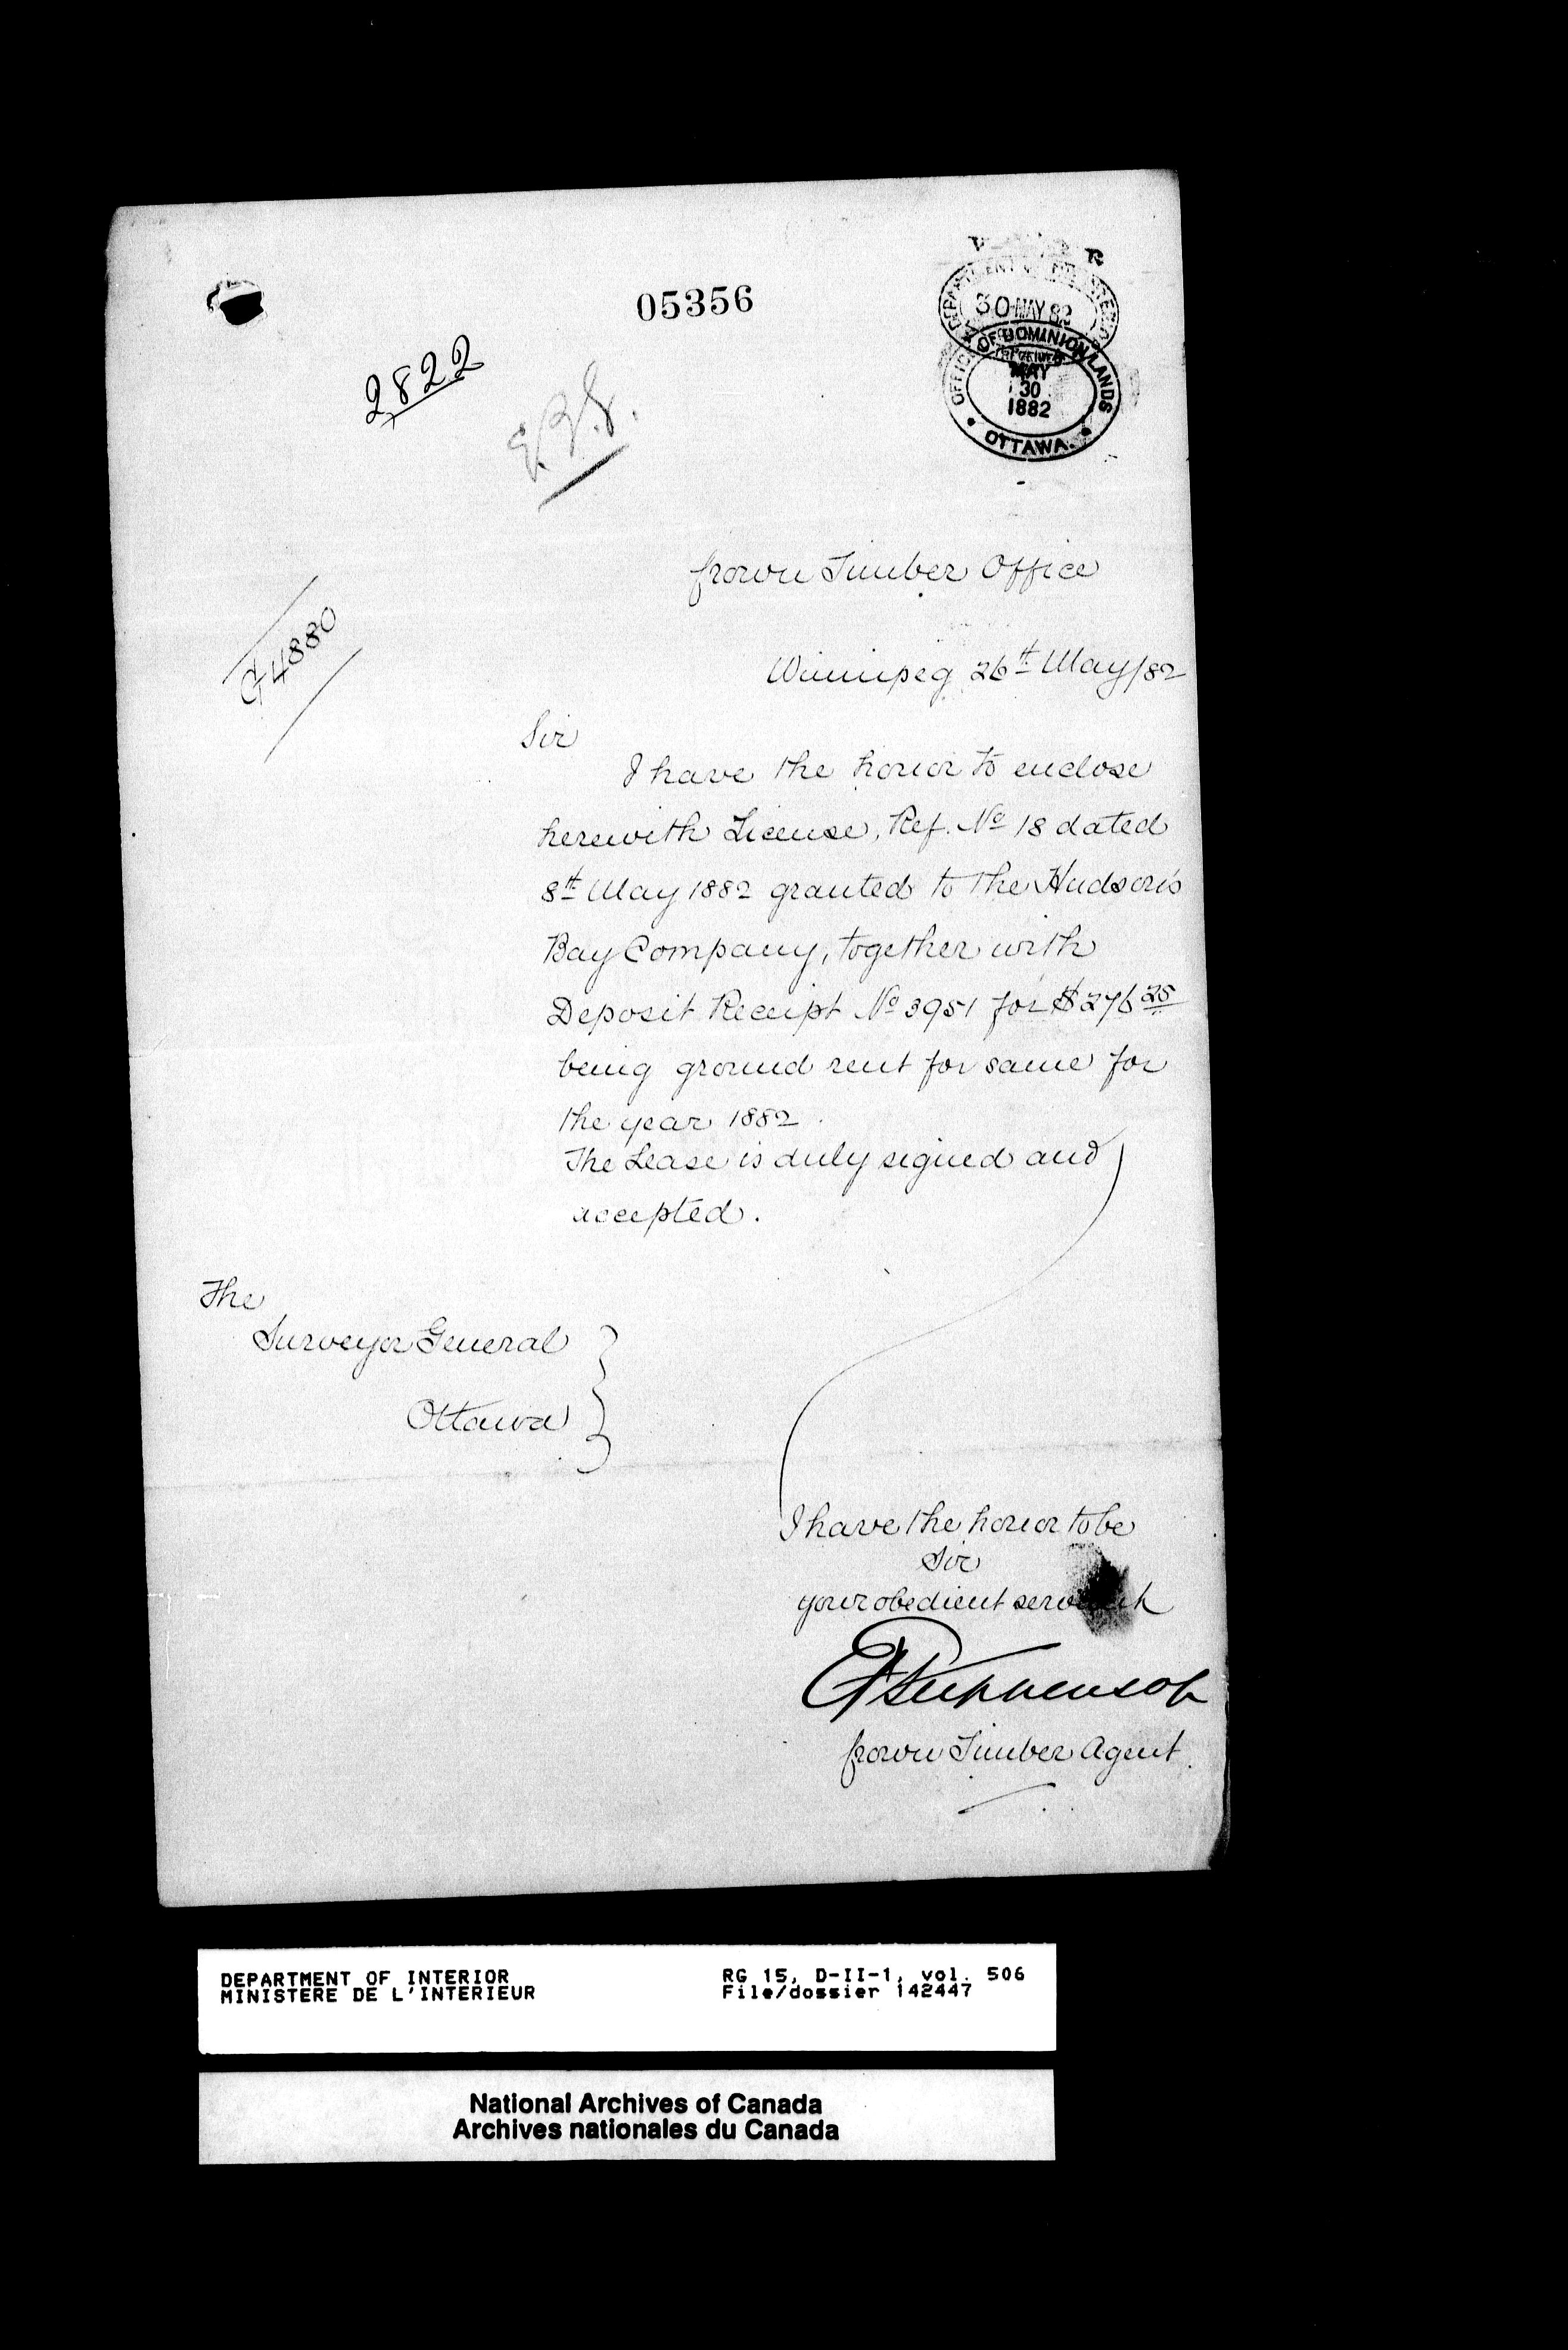 05356
2822
DEPARTMENT OF THE INTERIOR
30 MAY 82
OFFICE OF DOMINION LANDS
MAY
30
1882
OTTAWA.
G 4880
Crown Timber Office
Winnipeg 26th May/82
Sir
I have the honor to enclose
herewith License, Ref. No 18 dated
8th May 1882 granted to the Hudson's
Bay Company, together with
Deposit Receipt No 3951 for $276 25
being ground rent for same for
the year 1882.
The Lease is duly signed and
accepted.
The
Surveyor General
Ottawa
I have the honor to be
Sir
your obedient servant
Stephenson
Crown Timber Agent.
DEPARTMENT OF INTERIOR
MINISTERE DE L'INTERIEUR
RG 15, D-II-1, vol. 506
File/dossier 142447
National Archives of Canada
Archives nationales du Canada